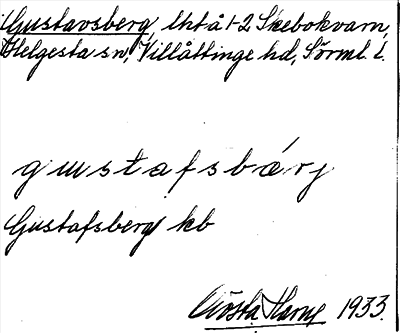 Gustavsberg, lht å 1-2 Skebokvarn,
Helgesta sn, Villåttinge hd, Sörml. l.
gustafsbárj
Gustafsberg kb
Gösta Harne 1933.